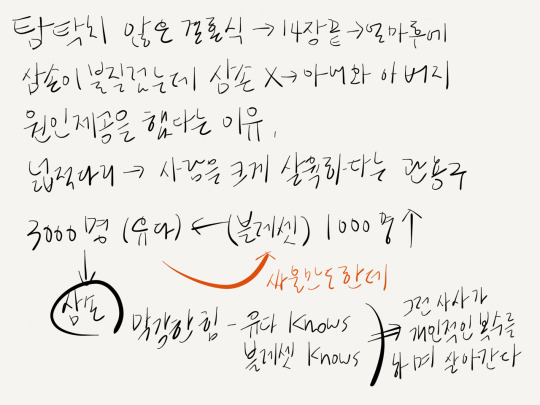 탐탁치 않은 결혼식 → 14장끝 → 얼마후에
삼손이 불질렀는데 삼손 X → 아내와 아버지
원인제공을 했다는 이유,
넓적다리 → 사람을 크게 살육하다는 관용구
3000명 (유다) ← (블레셋) 1000명↑
싸울만도한데
삼손
막강한힘 - 유다 Knows
블레셋 Knows
그런 사사가
개인적인 복수를
하며 살아간다